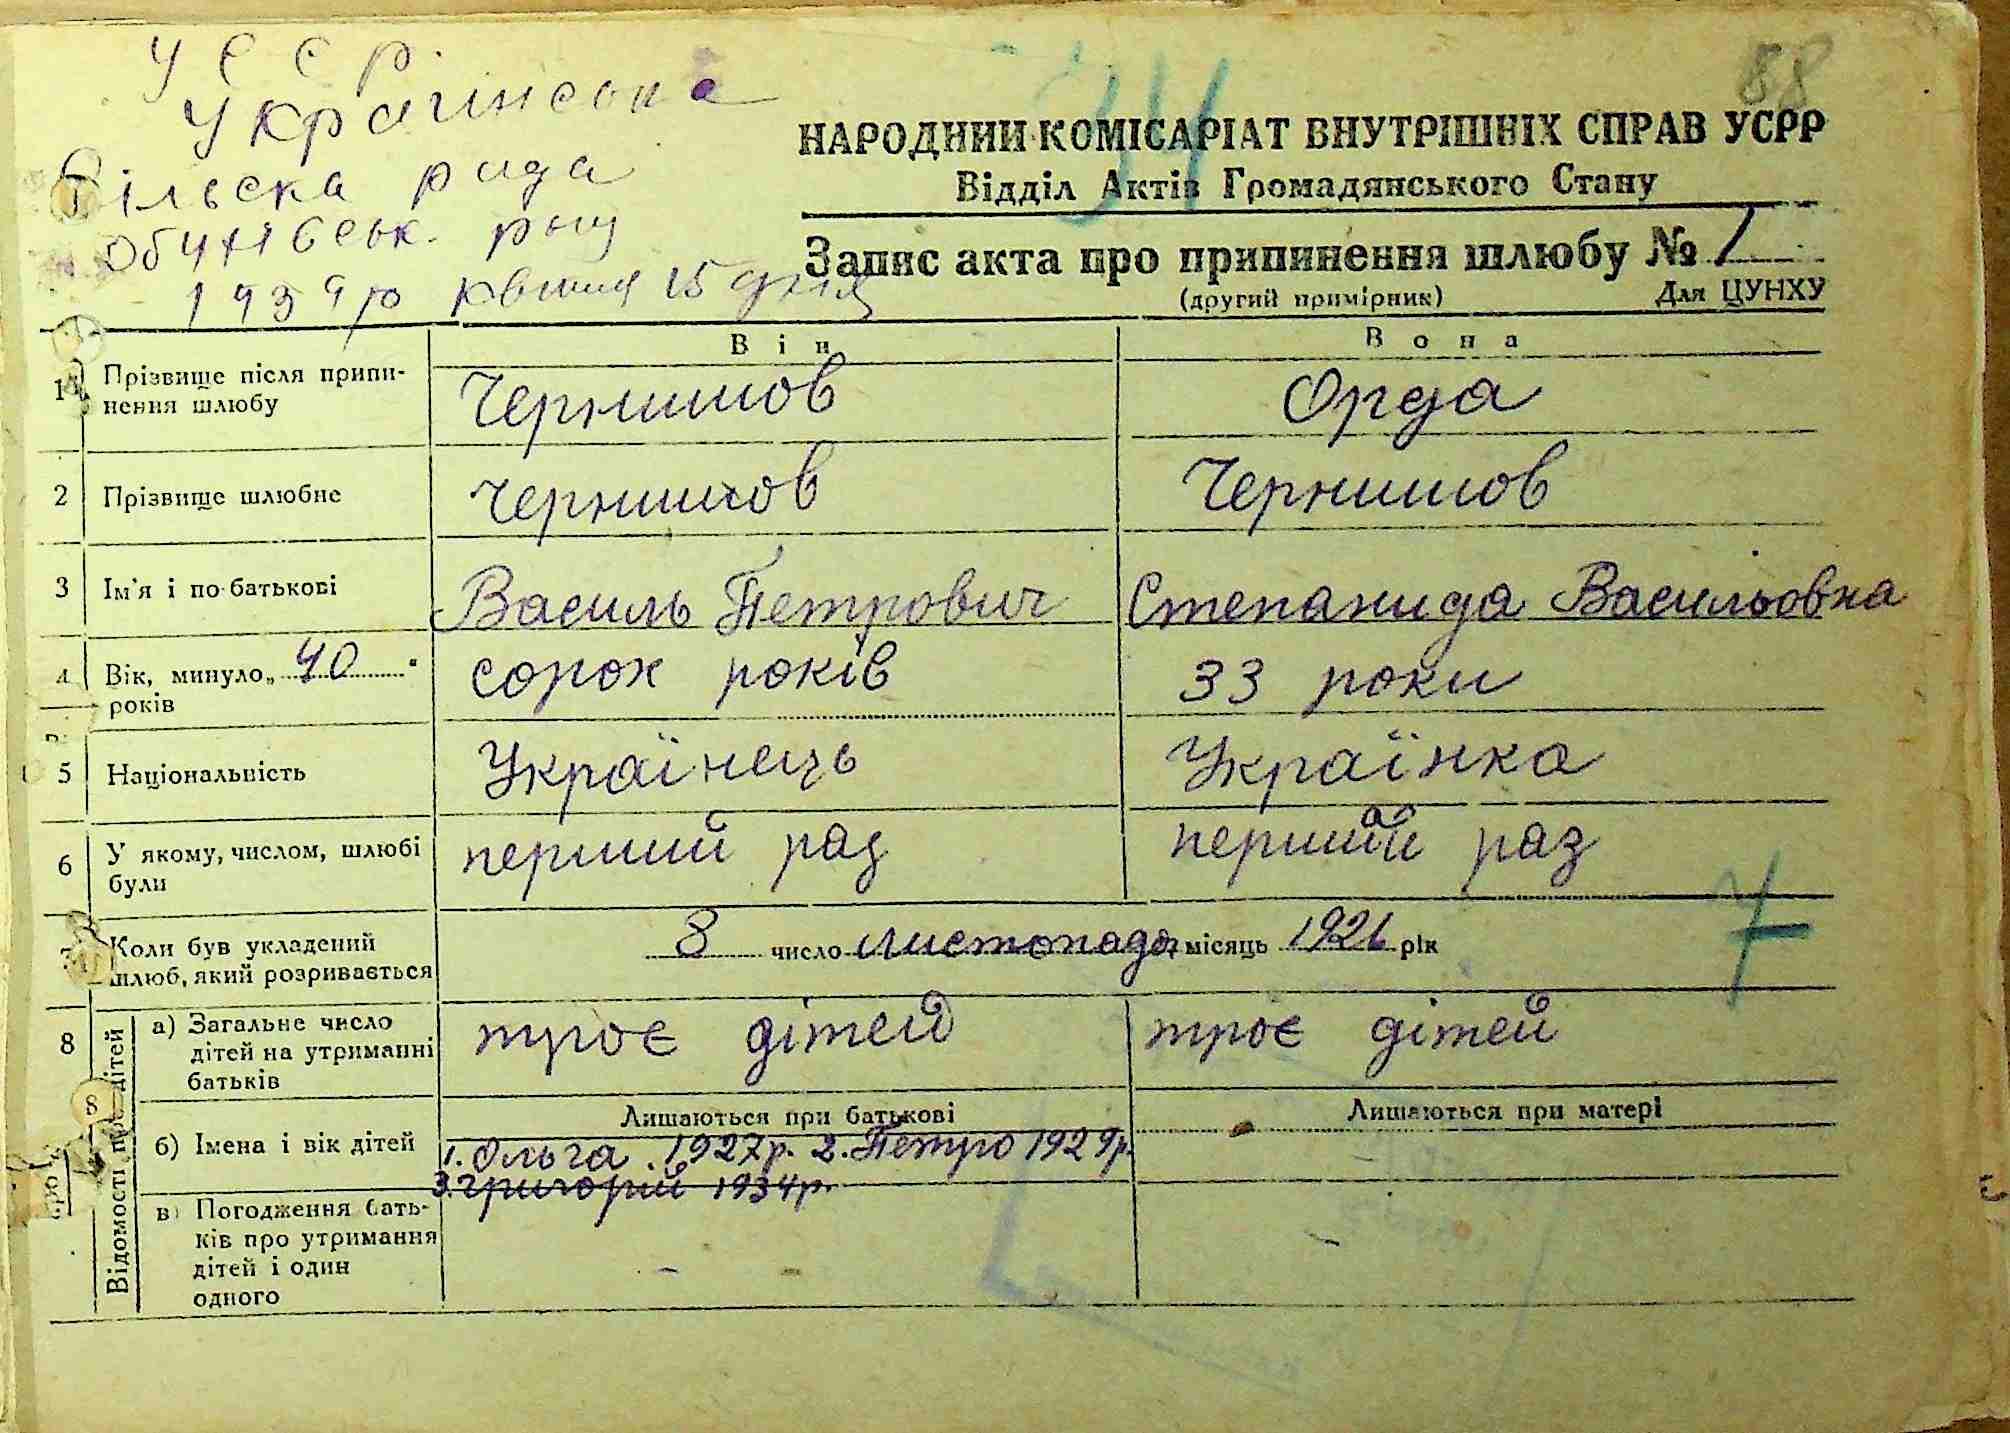 88
У С С Р
Українська
Сільска рада
Обухівськ. рну
1939 ю квітня 15 дня
НАРОДНИЙ КОМІСАРІАТ ВНУТРІШНІХ СПРАВ УСРР
Відділ Актів Громадянського Стану
Запис акта про припинення шлюбу № 1
(другий примірник) Для ЦУНХУ
Він Вона
1 Прізвище після припи-
нення шлюбу
Чернишов Орда
2 Прізвище шлюбне Чернишов Чернишов
3 Ім'я і по-батькові Василь Петрович Степанида Васильовна
4 Вік, минуло „ 40 "
років
сорок років 33 роки
5 Національність Українець Українка
6 У якому, числом, шлюбі
були
перший раз перший раз
7 Коли був укладений
шлюб, який розривається
8 число листопада місяць 1921 рік
8 Відомості про дітей
а) Загальне число
дітей на утриманні
батьків
троє дітей троє дітей
Лишаються при батькові Лишаються при матері
б) Імена і вік дітей 1. Ольга 1927р. 2. Петро 1929р.
3. Григорій 1934р.
в) Погодження бать-
ків про утримання
дітей і один
одного